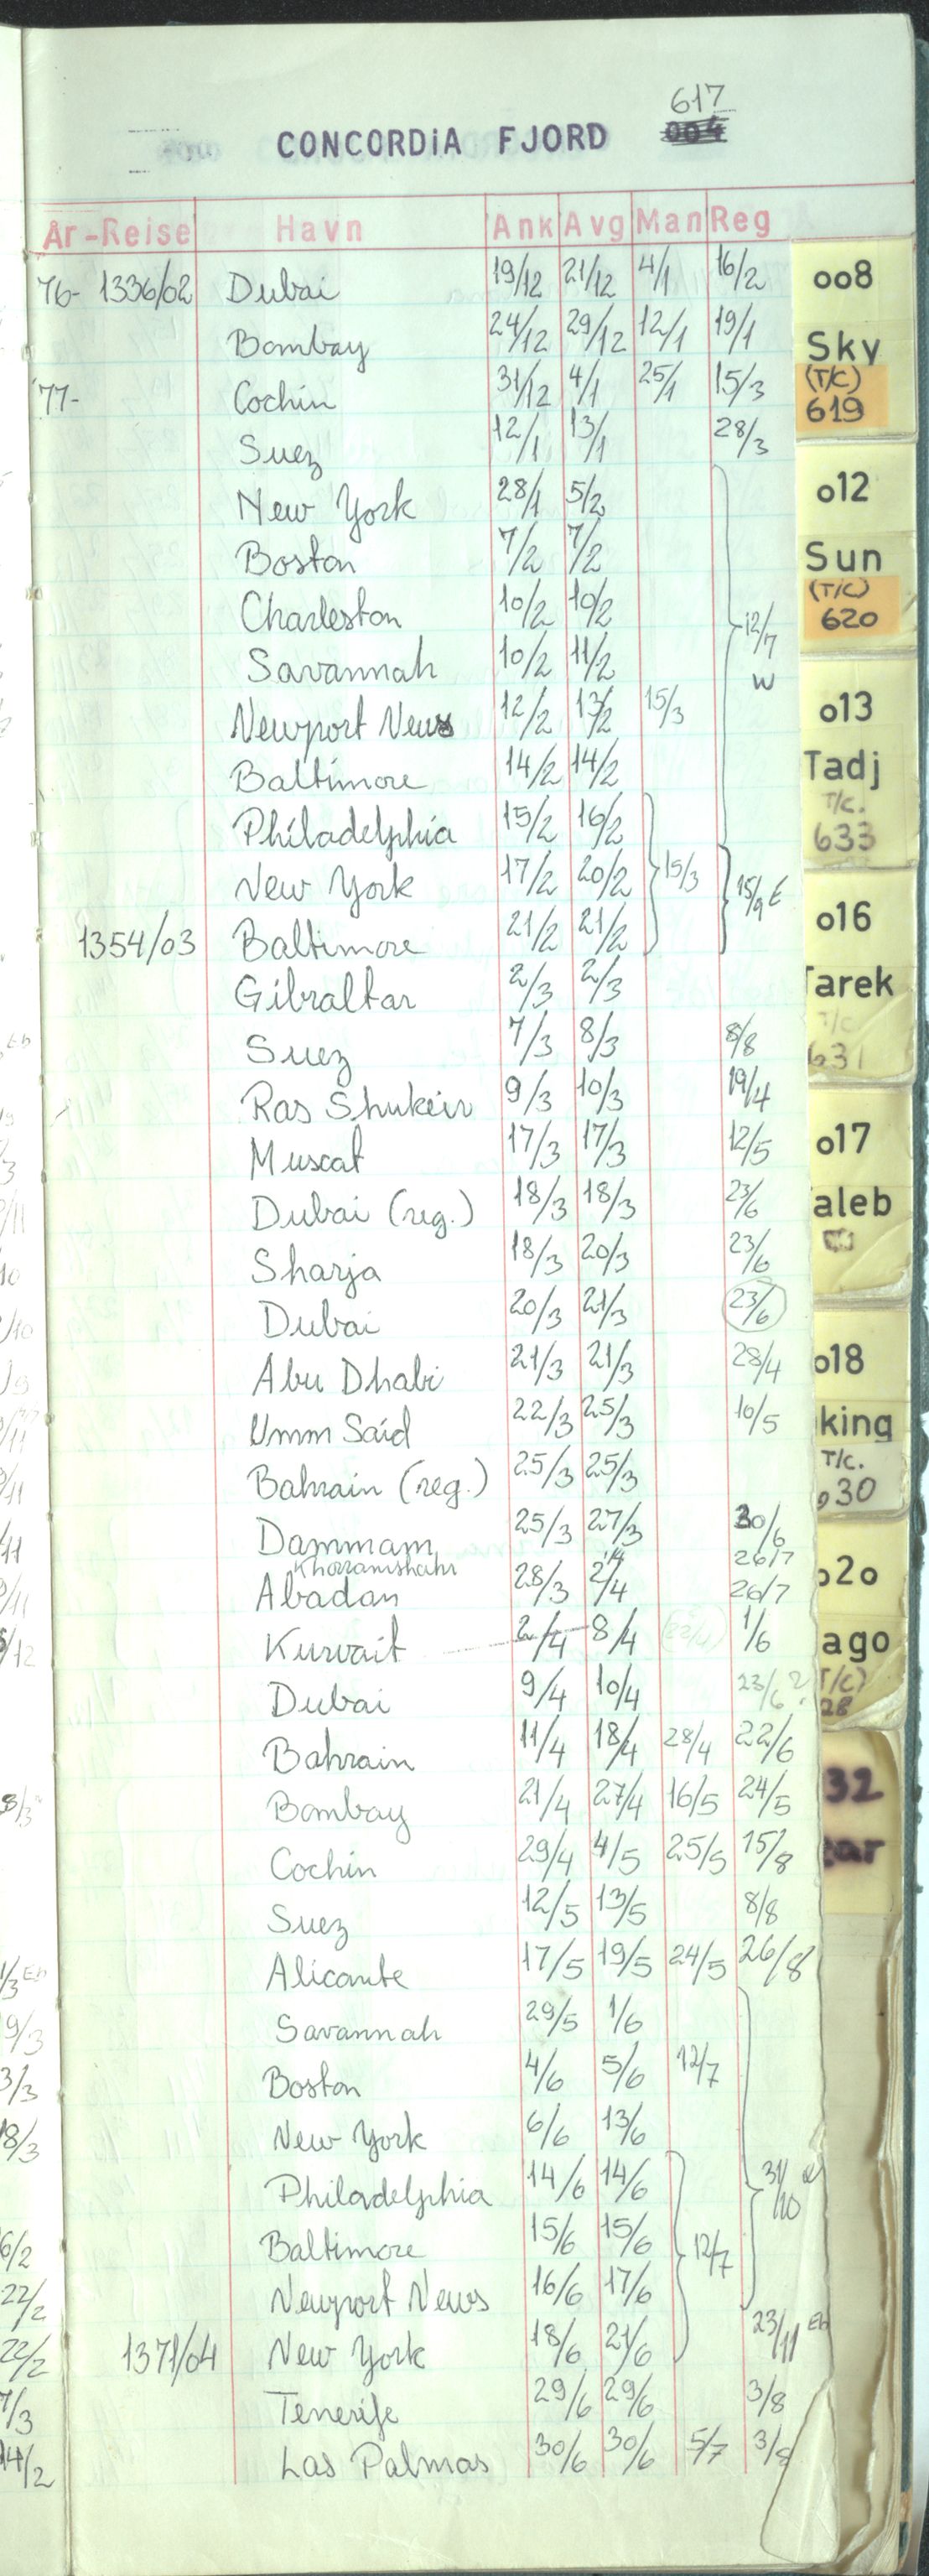 617
CONCORDIA FJORD 004
År-Reise Havn Ank Avg Man Reg
76- 1336/02 Dubai 19/12 21/12 4/1 16/2
Bombay 24/12 29/12 12/1 19/1
'77- Cochin 31/12 4/1 25/1 15/3
Suez 12/1 13/1 28/3
New York 28/1 5/2
Boston 7/2 7/2
Charleston 10/2 10/2 12/7
Savannah 10/2 11/2 W
Newport News 12/2 13/2 15/3
Baltimore 14/2 14/2
Philadelphia 15/2 16/2
New York 17/2 20/2 15/3 15/9 E
1354/03 Baltimore 21/2 21/2
Gibraltar 2/3 2/3
Suez 7/3 8/3 8/8
Ras Shukeir 9/3 10/3 19/4
Muscat 17/3 17/3 12/5
Dubai (reg.) 18/3 18/3 23/6
Sharja 18/3 20/3 23/6
Dubai 20/3 21/3 23/6
Abu Dhabi 21/3 21/3 28/4
Umm Said 22/3 25/3 10/5
Bahrain (reg.) 25/3 25/3
Dammam 25/3 27/3 30/6
Khorramshahr 26/7
Abadan 28/3 2/4 26/7
Kuwait 2/4 8/4 22/4 1/6
Dubai 9/4 10/4 23/6 ?
Bahrain 11/4 18/4 28/4 22/6
Bombay 21/4 27/4 16/5 24/5
Cochin 29/4 4/5 25/5 15/8
Suez 12/5 13/5 8/8
Alicante 17/5 19/5 24/5 26/8
Savannah 29/5 1/6
Boston 4/6 5/6 12/7
New York 6/6 13/6
Philadelphia 14/6 14/6 31/10
Baltimore 15/6 15/6 12/7
Newport News 16/6 17/6
1371/04 New York 18/6 21/6 23/11 Eb
Tenerife 29/6 29/6 3/8
Las Palmas 30/6 30/6 5/7 3/8
008
Sky
(T/C)
619
012
Sun
(T/C)
620
013
Tadj
T/C.
633
016
Tarek
T/C.
631
017
aleb
018
king
T/C.
630
020
ago
(T/C)
28
32
ar